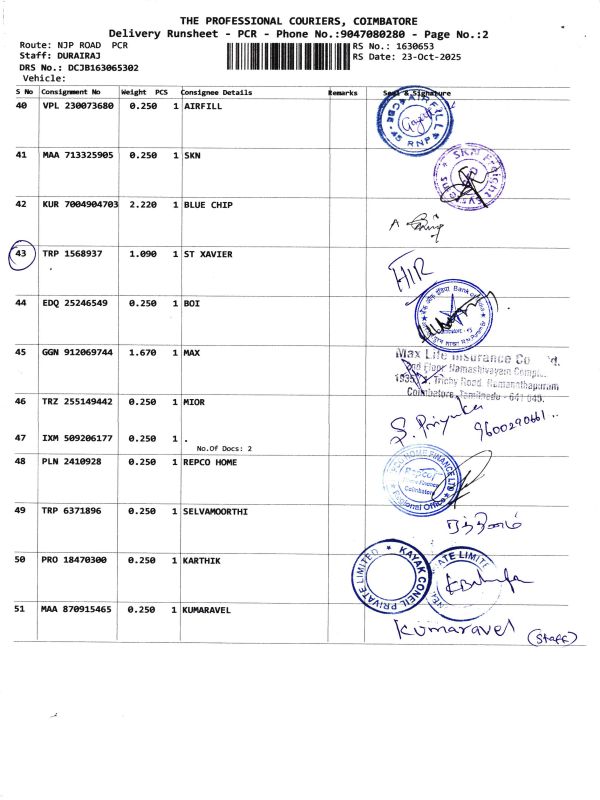 THE PROFESSIONAL COURIERS, COIMBATORE
Delivery Runsheet - PCR - Phone No.:9047080280 - Page No.:2
Route: NJP ROAD PCR
Staff: DURAIRAJ
DRS No.: DCJB163065302
Vehicle:
RS No.: 1630653
RS Date: 23-Oct-2025
S No Consignment No Weight PCS Consignee Details Remarks Seal & Signature
40 VPL 230073680 0.250 1 AIRFILL
AIRFILL CBE - 45 RNP
41 MAA 713325905 0.250 1 SKN
SKN Freight Systems
42 KUR 7004904703 2.220 1 BLUE CHIP
A
43 TRP 1568937 1.090 1 ST XAVIER
HIR
44 EDQ 25246549 0.250 1 BOI
Bank of India
45 GGN 912069744 1.670 1 MAX
Max Life Insurance Co
2nd Floor Namashivayam Compl
Trichy Road, Ramanathapuram
Coimbatore, Tamilnadu - 641 045.
46 TRZ 255149442 0.250 1 MIOR
S. Priyanka 9600290661
47 IXM 509206177 0.250 1 .
No.Of Docs: 2
48 PLN 2410928 0.250 1 REPCO HOME
HOME FINANCE LTD
Repco
Home Finance
Coimbatore
Regional Office
49 TRP 6371896 0.250 1 SELVAMOORTHI
50 PRO 18470300 0.250 1 KARTHIK
KAYAK CONEIL PRIVATE LIMITED
51 MAA 870915465 0.250 1 KUMARAVEL
Kumaravel (Staff)